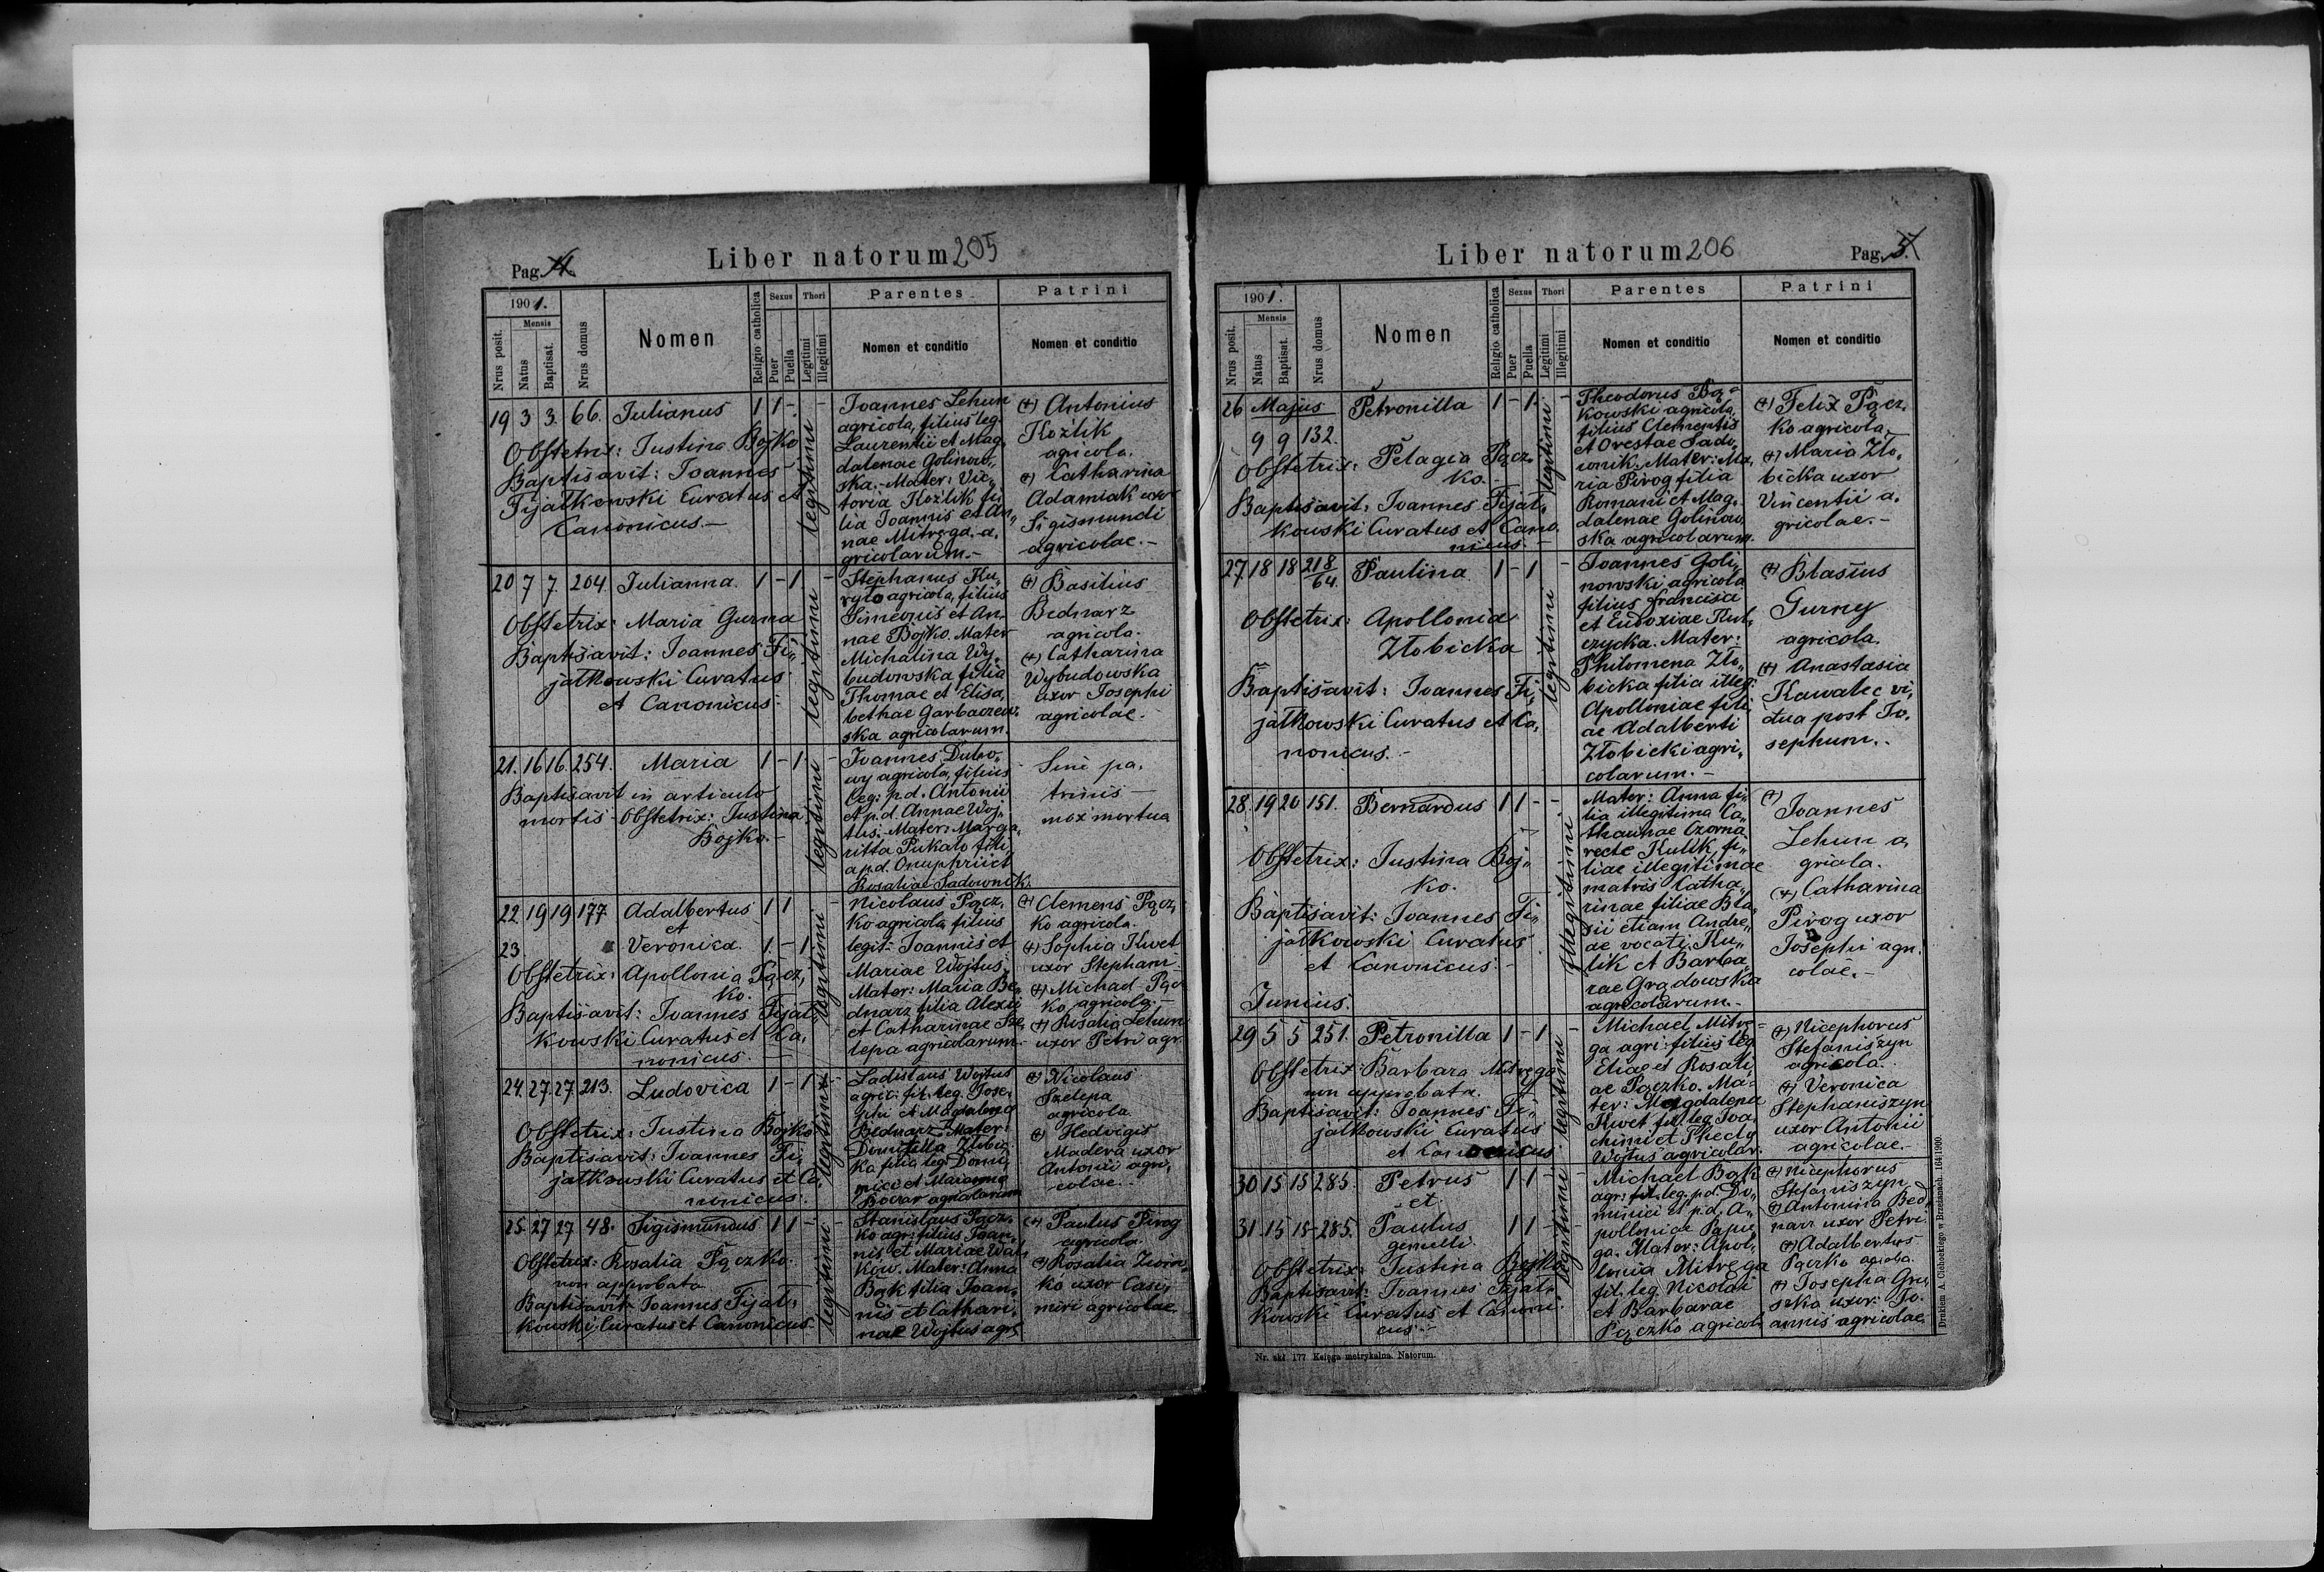 Pag. 4.
Liber natorum 205
1901.
Nrus posit.
Mensis
Natus
Baptisat.
Nrus domus
Nomen
Religio catholica
Sexus
Puer
Puella
Thori
Legitimi
Illegitimi
Parentes
Nomen et conditio
Patrini
Nomen et conditio
19 3 3. 66. Julianus 1 1 - -
Obstetrix: Justina Bojko
Baptisavit: Joannes
Fijałkowski Curatus et
Canonicus.-
legitimi
Joannes Lehun
agricola, filius leg.
Laurentii et Mag„
dalenae Golinow„
ska.-Mater: Vic„
toria Kozlik fi„
lia Joannis et An„
nae Mitręga. a„
gricolarum.-
(+) Antonius
Kozlik
agricola.
(+) Catharina
Adamiak uxor
Sigismundi
agricolae.-
20 7 7. 204. Julianna. 1 - 1 -
Obstetrix: Maria Gurna
Baptisavit: Joannes Fi„
jałkowski Curatus
et Canonicus.
legitimi
Stephanus Ku„
ryło agricola, filius
Simeonis et An„
nae Bojko. Mater
Michalina Wy„
budowska filia
Thomae et Elisa„
bethae Garbaczew„
ska agricolarum.
(+) Basilius
Bednarz
agricola.
(+) Catharina
Wybudowska
uxor Josephi
agricolae.
21. 16 16. 254. Maria 1 - 1 -
Baptisavit in articulo
mortis Obstetrix: Justina
Bojko.-
legitimi
Joannes Dubo„
wy agricola, filius
leg: p.d. Antonii
et p.d. Annae Woj„
tus.-Mater: Marga„
ritta Pukało fili„
a p.d. Onuphrii et
Rosaliae Sadownik.
Sine pa„
trinis
mox mortua
22. 19 19 177 Adalbertus 1 1
et
23 Veronica. 1 - 1
Obstetrix: Apollonia Pącz„
ko.
Baptisavit: Joannes Fijał„
kowski Curatus et Ca„
nonicus
legitimi
Nicolaus Pącz„
ko agricola, filius
legit: Joannis et
Mariae Wojtus.
Mater: Maria Be„
dnarz filia Alexii
et Catharinae Sze„
lepa agricolarum.
(+) Clemens Pącz„
ko agricola.
(+) Sophia Kwet
uxor Stephani
(+) Michael Pącz
ko agricola.-
(+) Rosalia Lehun
uxor Petri agr.
24. 27 27. 213. Ludovica 1 - 1 -
Obstetrix: Justina Bojko
Baptisavit: Joannes Fi„
jałkowski Curatus et Ca„
nonicus.
legitimi
Ladislaus Wojtus
agric: fil. leg. Jose„
phi et Magdalena
Bednarz Mater:
Domitella Złobic„
ka filia leg: Domi„
nici et Marianna
agricolarum
(+) Nicolaus
Szelepa
agricola.
(+) Hedvigis
Madera uxor
Antonii agri„
colae.-
25. 27 27 48. Sigismundus 1 1 -
Obstetrix: Rosalia Pączko.
non approbata
Baptisavit Joannes Fijał„
kowski Curatus et Canonicus.
legitimi
Stanislaus Pącz„
ko agr: filius Joan„
nis et Mariae Wal„
kow. Mater: Anna
Bąk filia Joan„
nis et Cathari„
nae Wojtus agr.
(+) Paulus Pirog
agricola.
(+) Rosalia
ko uxor Casi„
miri agricolae
Liber natorum 206
Pag. 5.
1901.
Nrus posit.
Mensis
Natus
Baptisat.
Nrus domus
Nomen
Religio catholica
Sexus
Puer
Puella
Thori
Legitimi
Illegitimi
Parentes
Nomen et conditio
Patrini
Nomen et conditio
26 Majus Petronilla 1 - 1 -
9 9 132.
Obstetrix: Pelagia Pącz„
ko.-
Baptisavit: Joannes Fijał„
kowski Curatus et Cano„
nicus.-
legitimi
Theodorus Bą=
kowski agricola,
filius Clementis
et Orestae Sado„
wnik. Mater: Ma„
ria Pirog filia
Romani et Mag„
dalenae Golinow„
ska agricolarum.
(+) Felix Pącz„
ko agricola.
(+) Maria Zło„
bicka uxor
Vincentii a„
gricolae.-
27. 18 18 218/64. Paulina 1 - 1 -
Obstetrix: Apollonia
Złobicka
Baptisavit: Joannes Fi„
jałkowski Curatus et Ca„
nonicus.-
legitimi
Joannes Goli„
nowski agricola
filius Francisci
et Eudoxiae Kul„
czycka. Mater:
Philomena Zło„
bicka filia illeg:
Apolloniae fili„
ae Adalberti
Złobicki agri„
colarum.-
(+) Blasius
Gurny
agricola.
(+) Anastasia
Kawalec vi„
dua post Jo„
sephum.-
28. 19 20 151. Bernardus 1 1 - -
Obstetrix: Justina Boj„
ko.
Baptisavit: Joannes Fi„
jałkowski Curatus
et Canonicus.-
illegitimi
Mater: Anna fi„
lia illegitima Ca„
tharinae Czorna
recte Kulik, fi„
liae illegitimae
matris Catha„
rinae filiae Bla„
sii etiam Andre„
ae vocati Ku„
lik et Barba„
rae Gradowska
agricolarum.-
(+) Joannes
Lehun a„
gricola.
(+) Catharina
Pirog uxor
Josephi agri„
colae.-
Junius.
29 5 5 251. Petronilla 1 - 1 -
Obstetrix Barbara Mitręga
non approbata.
Baptisavit: Joannes Fi„
jałkowski Curatus
et Canonicus
legitimi
Michael Mitrę=
ga agri: filius leg
Eliae et Rosali„
ae Pączko. Ma=
ter: Magdalena
Kwet fil. leg. Joa„
chimi et Thecly
Wojtus agricolar.
(+) Nicephorus
Stefaniszyn
agricola.
(+) Veronica
Stephaniszyn
uxor Antonii
agricolae.-
30 15 15 285. Petrus 1 1 - -
et
31. 15 15 285. Paulus 1 1 -
gemelli.
Obstetrix: Justina Bojko
Baptisavit: Joannes Fijał„
kowski Curatus et Canoni„
cus.-
legitimi
Michael Bąk
agr: fil. leg. p.d. Do„
minici et p.d. A„
polloniae Papu
ga. Mater: Apol„
lonia Mitręga
fil. leg. Nicolai
et Barbarae
Pączko agricol.
(+) Nicephorus
Stefaniszyn
(+) Antonina Bed„
narz uxor Petri.
(+) Adalbertus
Pączko agricola.
(+) Josepha Gru„
szka uxor: Jo„
annis agricolae.
Nr. skł. 177 Księga metrykalna. Natorum.
Drukiem A. Cichockiego w Brzeżanach. 164/1900.